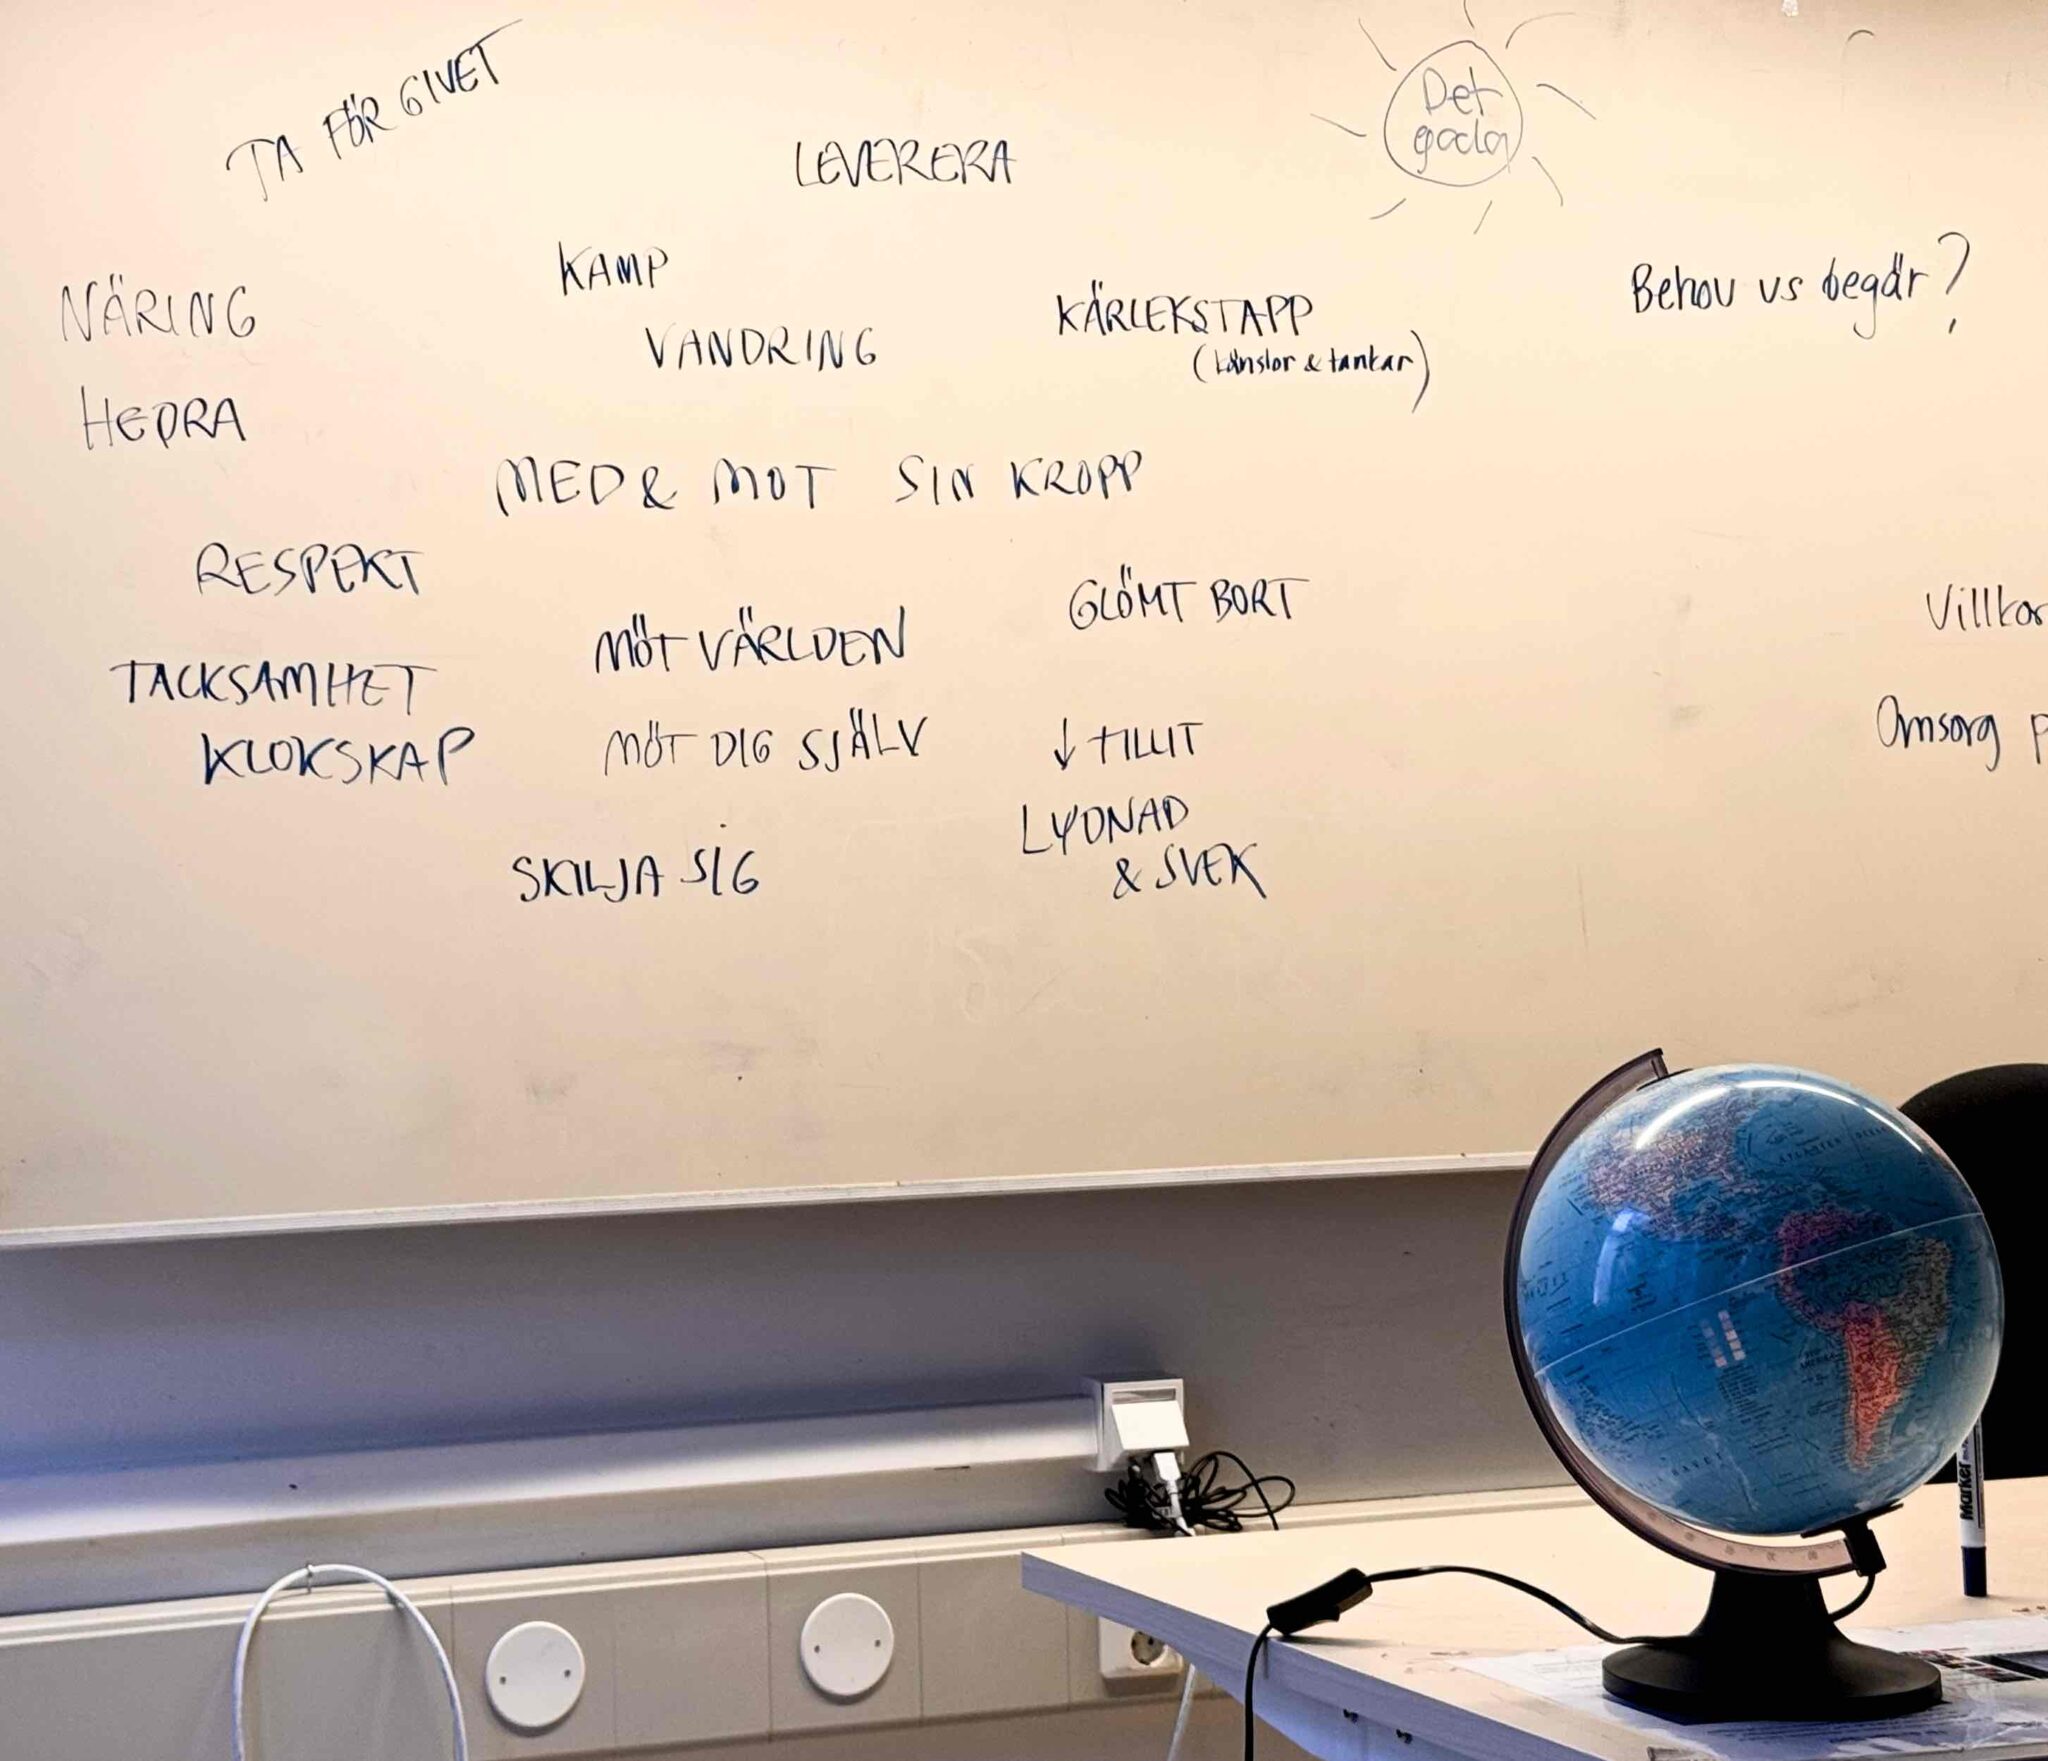 TA FÖR GIVET
LEVERERA
Det
goda
NÄRING
KAMP
VANDRING
KÄRLEKSTAPP
(känslor & tankar)
Behov vs begär?
HEDRA
MED & MOT SIN KROPP
RESPEKT
GLÖMT BORT
MÖT VÄRLDEN
TACKSAMHET
MÖT DIG SJÄLV
↓ TILLIT
KLOKSKAP
LYDNAD
& SVEK
SKILJA SIG
Villkor
Omsorg p
Marker